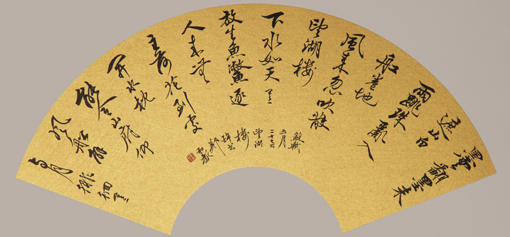 黑雲翻墨未
遮山白
雨跳珠亂入
船卷地
風來忽吹散
望湖樓
下水如天
放生魚鱉逐
人來無
主荷花到處
開水枕
能令山府仰
風船解
与月徘徊
蘇軾
六月
二十七日
望湖
樓
醉書